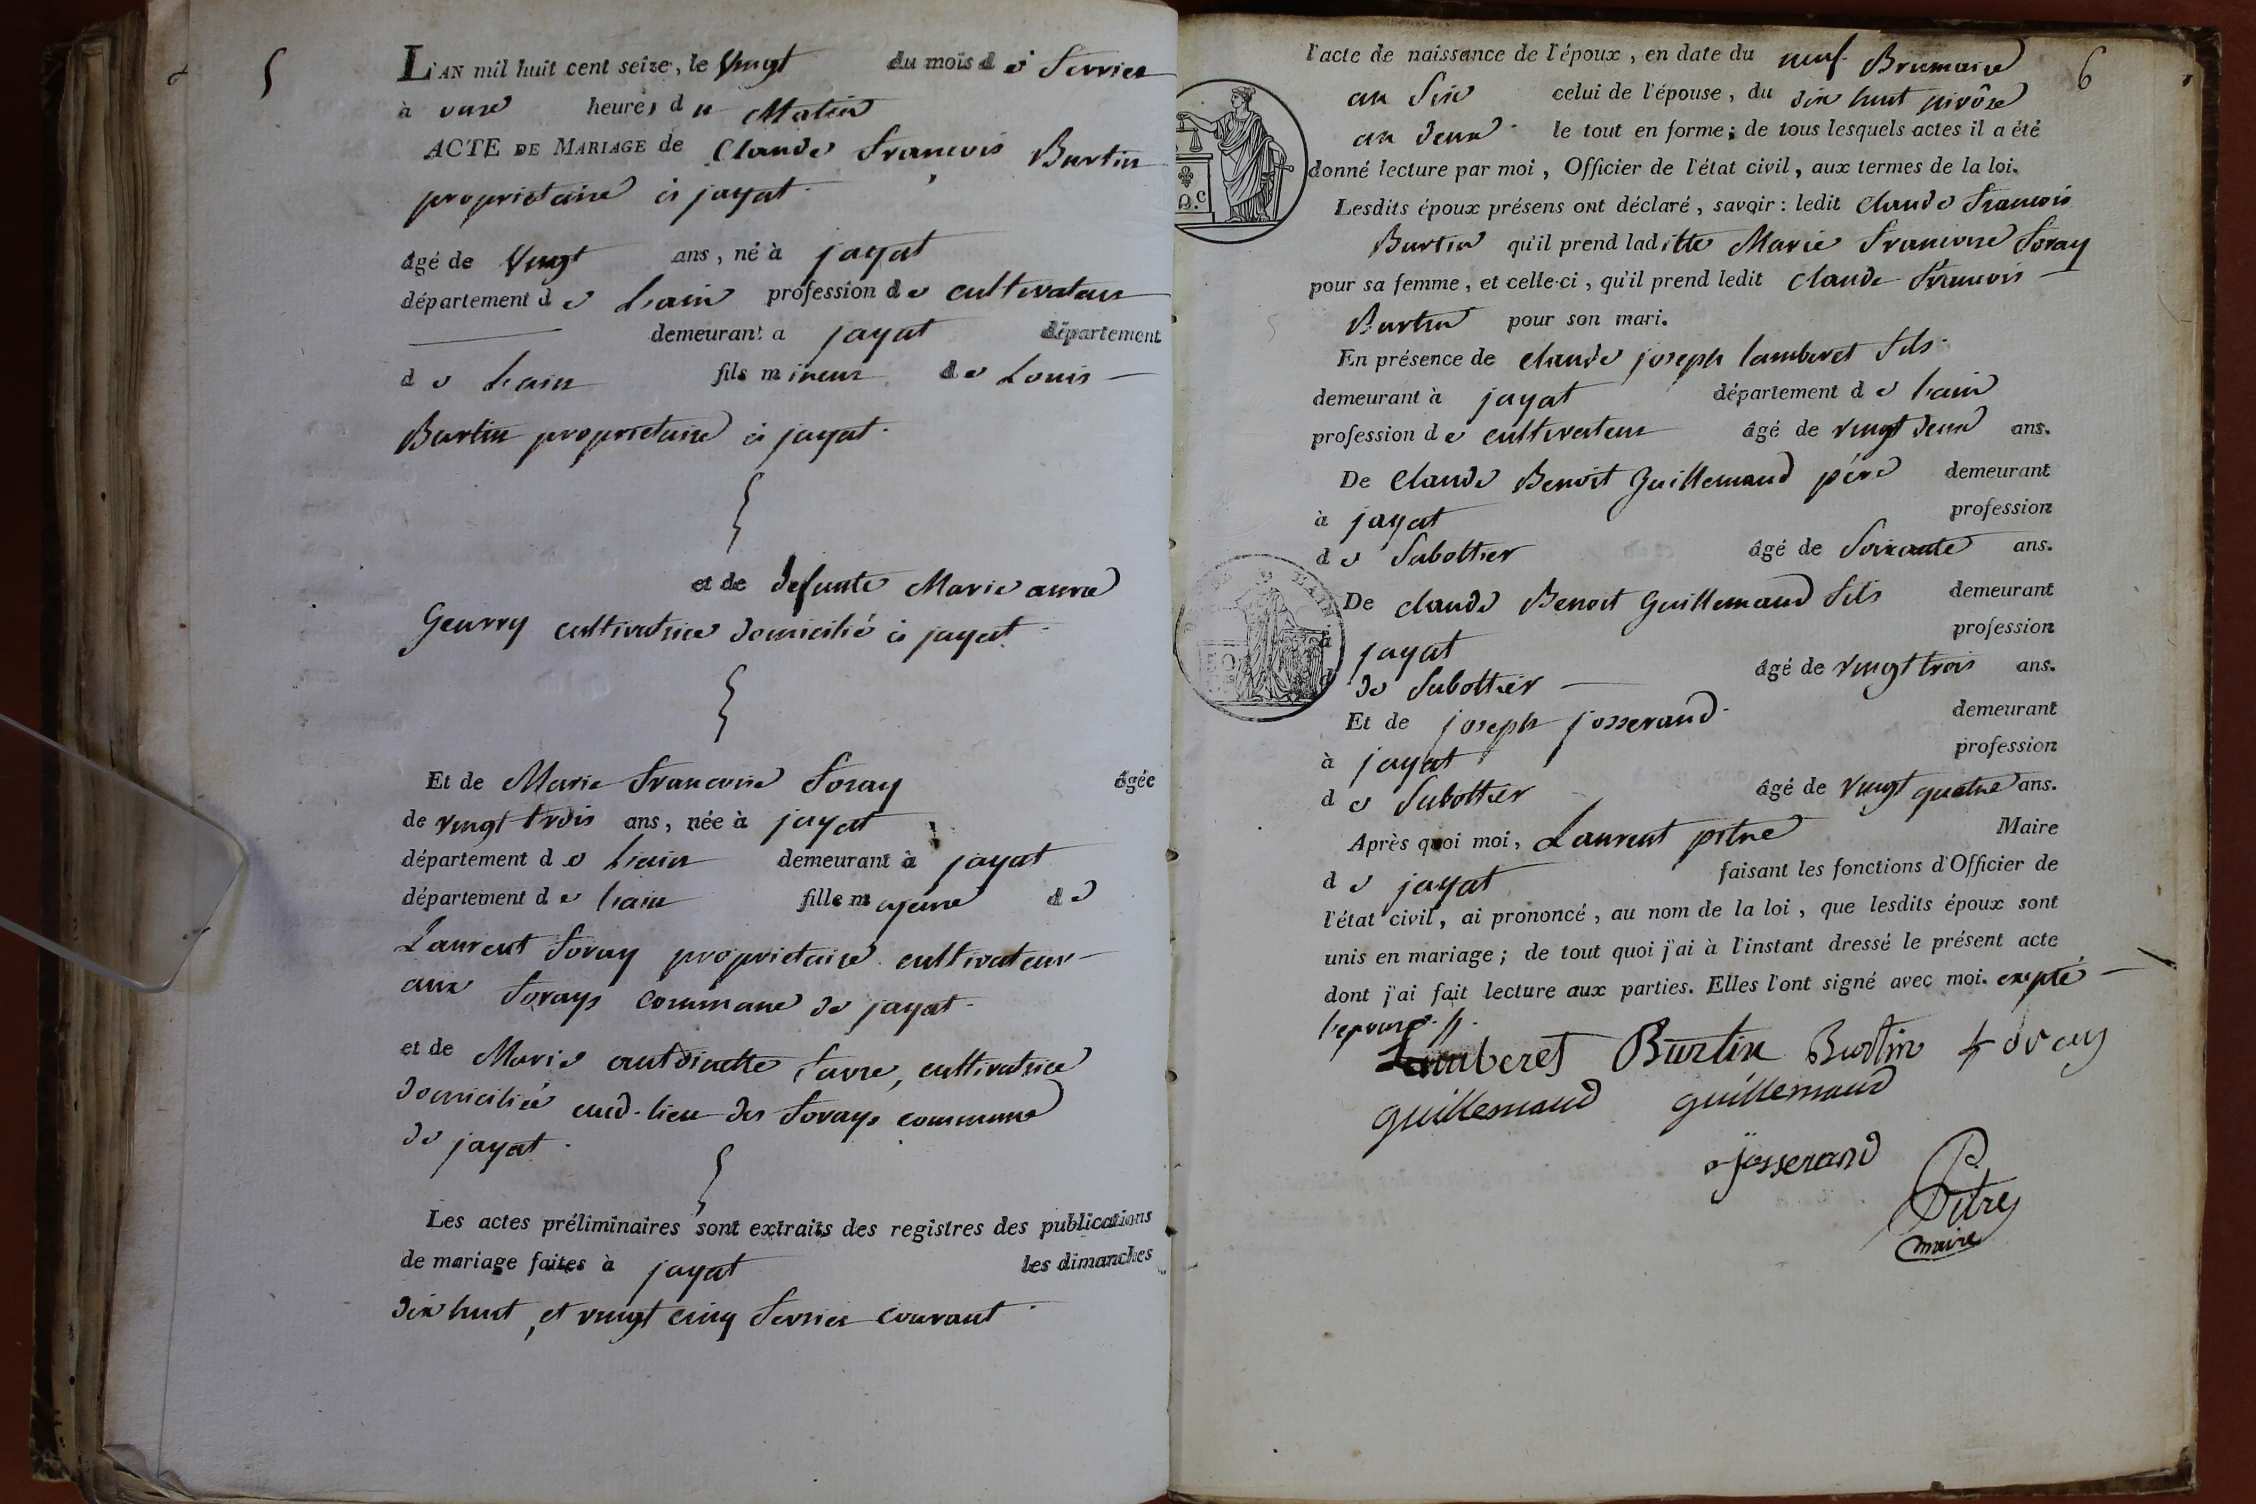 5
L'AN mil huit cent seize, le Vingt du mois de fevrier
à onze heures du Matin
ACTE DE MARIAGE de Claude francois Burtin
proprietaire à jayat.
âgé de Vingt ans, né à jayat
département de L'ain profession de cultivateur
demeurant a jayat département
de L'ain fils mineur de Louis
Burtin proprietaire à jayat.
et de defunte Marie anne
Geurry cultivatrice domicilié à jayat.
Et de Marie francoise foray âgée
de vingt trois ans, née à jayat
département de L'ain demeurant à jayat
département de L'ain fille majeure de
Laurent foray proprietaire cultivateur
aux forays commune de jayat.
et de Marie antoinette favre, cultivatrice
domiciliée aud. lieu des forays commune
de jayat.
Les actes préliminaires sont extraits des registres des publications
de mariage faites à jayat les dimanches
dix huit, et vingt cinq fevrier courant.
6
l'acte de naissance de l'époux, en date du neuf Brumaire
an Six celui de l'épouse, du dix huit nivôse
an deux le tout en forme; de tous lesquels actes il a été
donné lecture par moi, Officier de l'état civil, aux termes de la loi.
Lesdits époux présens ont déclaré, savoir: ledit Claude francois
Burtin qu'il prend laditte Marie francoise foray
pour sa femme, et celle-ci, qu'il prend ledit Claude francois
Burtin pour son mari.
En présence de claude joseph lamberet fils.
demeurant à jayat département de l'ain
profession de cultivateur âgé de vingt deux ans.
De Claude Benoit Guillemaud pére demeurant
à jayat profession
de Sabottier âgé de Soixante ans.
De claude Benoit Guillemaud fils demeurant
à jayat profession
de Sabottier âgé de vingt trois ans.
Et de joseph josserand. demeurant
à jayat profession
de Sabottier âgé de vingt quatre ans.
Après quoi moi, Laurent pitre Maire
de jayat faisant les fonctions d'Officier de
l'état civil, ai prononcé, au nom de la loi, que lesdits époux sont
unis en mariage; de tout quoi j'ai à l'instant dressé le présent acte
dont j'ai fait lecture aux parties. Elles l'ont signé avec moi. exepté
l'epouse.
Lamberet Burtin Burtin foray
guillemaud guillemaud
josserand
Pitre
maire